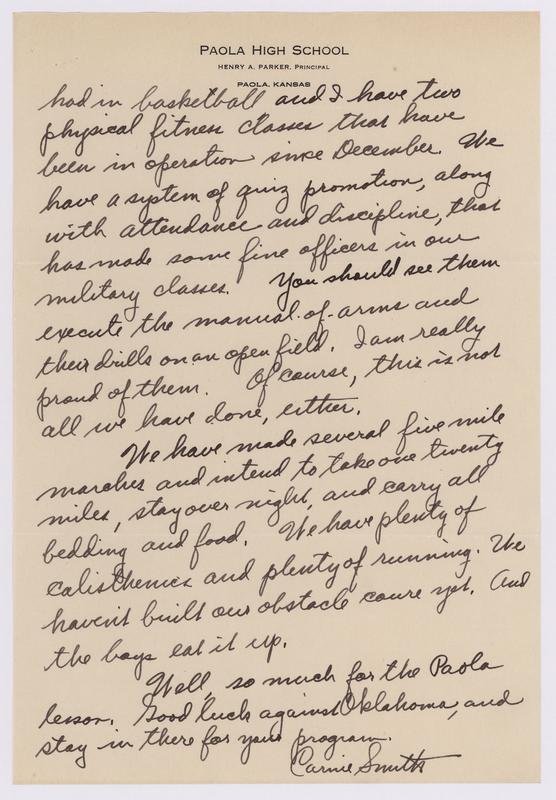 PAOLA HIGH SCHOOL
HENRY A. PARKER, PRINCIPAL
PAOLA, KANSAS
had in basketball and I have two
physical fitness classes that have
been in operation since December. We
have a system of quiz promotion, along
with attendance and discipline, that
has made some fine officers in our
military classes. You should see them
execute the manual-of-arms and
their drills on an open field. I am really
proud of them. Of course, this is not
all we have done, either.
We have made several five mile
marches and intend to take one twenty
miles, stay over night, and carry all
bedding and food. We have plenty of
calisthenics and plenty of running. We
haven't built our obstacle course yet. And
the boys eat it up.
Well, so much for the Paola
lesson. Good luck against Oklahoma, and
stay in there for your program.
Carnie Smith